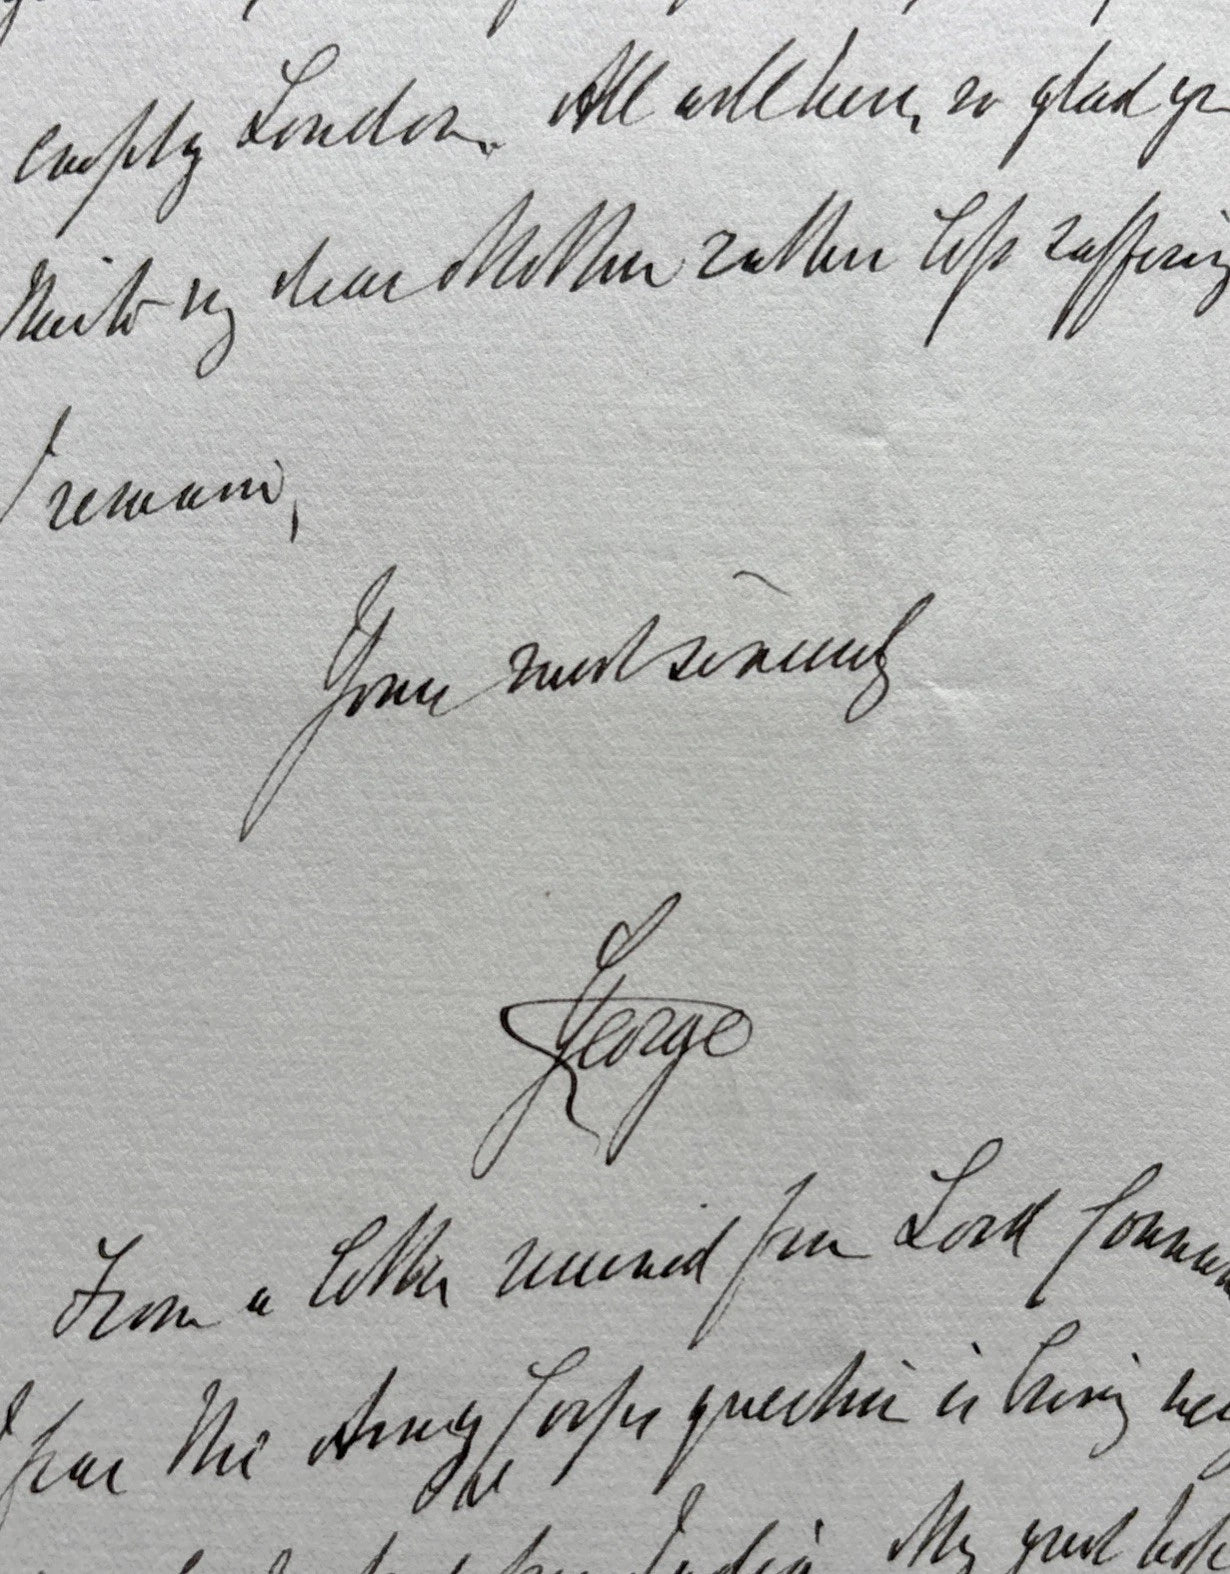 empty London. All well here, so glad yr
think my dear Mother rather less suffering
I remain,
Yours most sincerely
George
From a letter received from Lord
I fear the Army Corps question is being
India. My great hope